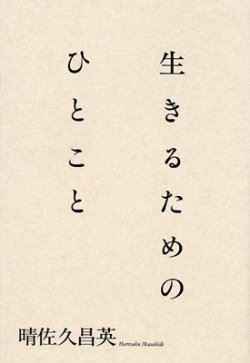 生きるための
ひとこと
晴佐久昌英 Haresaku Masahide